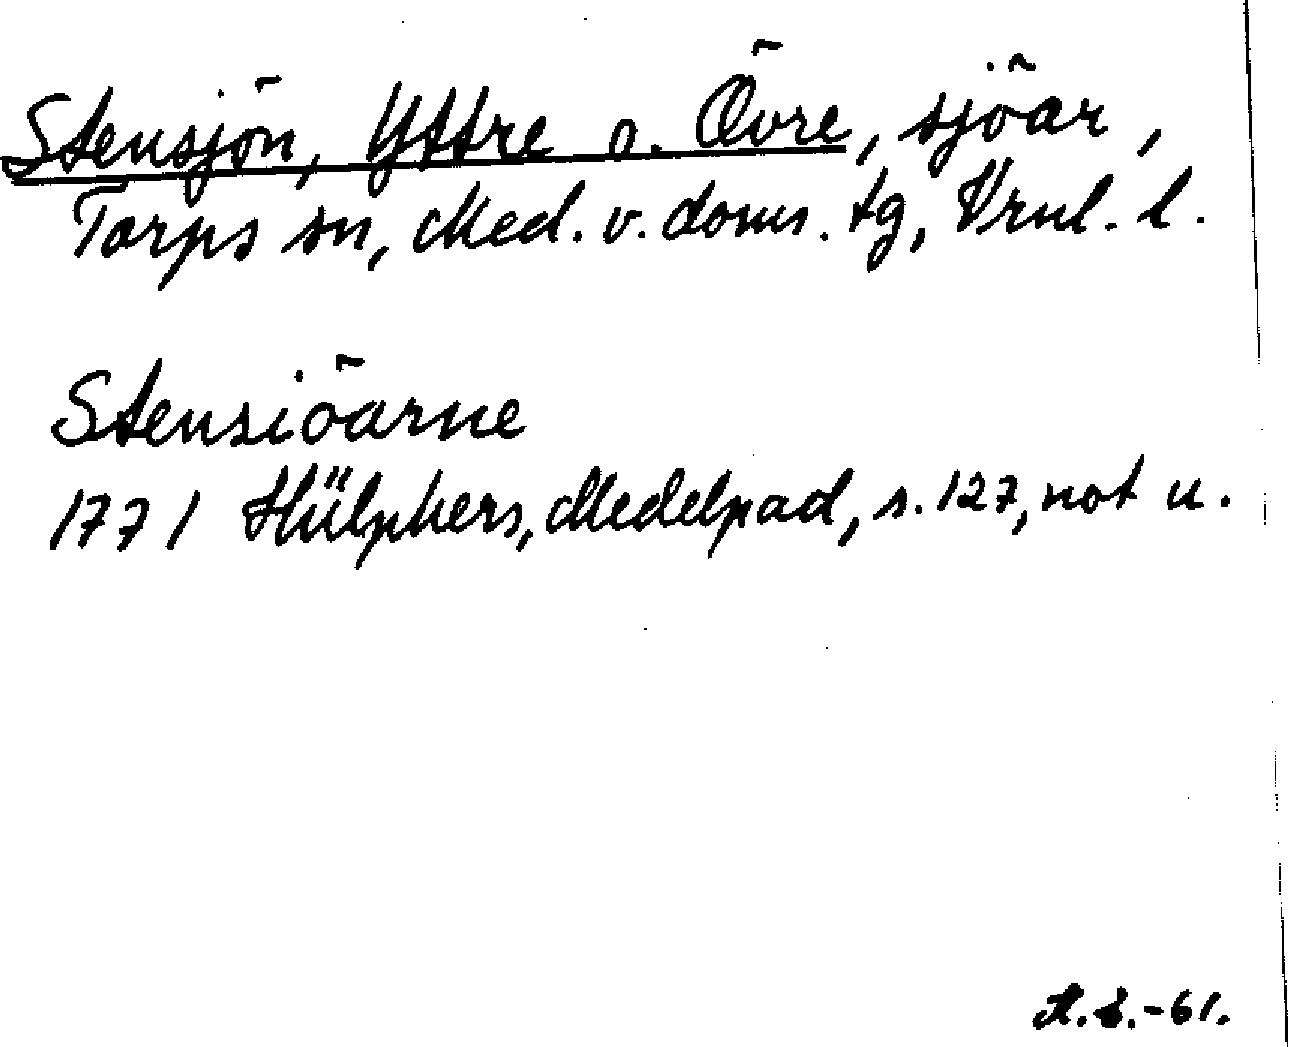 Stensjön, Yttre o. Övre, sjöar,
Torps sn, Med. v. doms. tg, Vrnl. l.
Stensiöarne
1771 Hülphers, Medelpad, s. 127, not u.
A.L.-61.